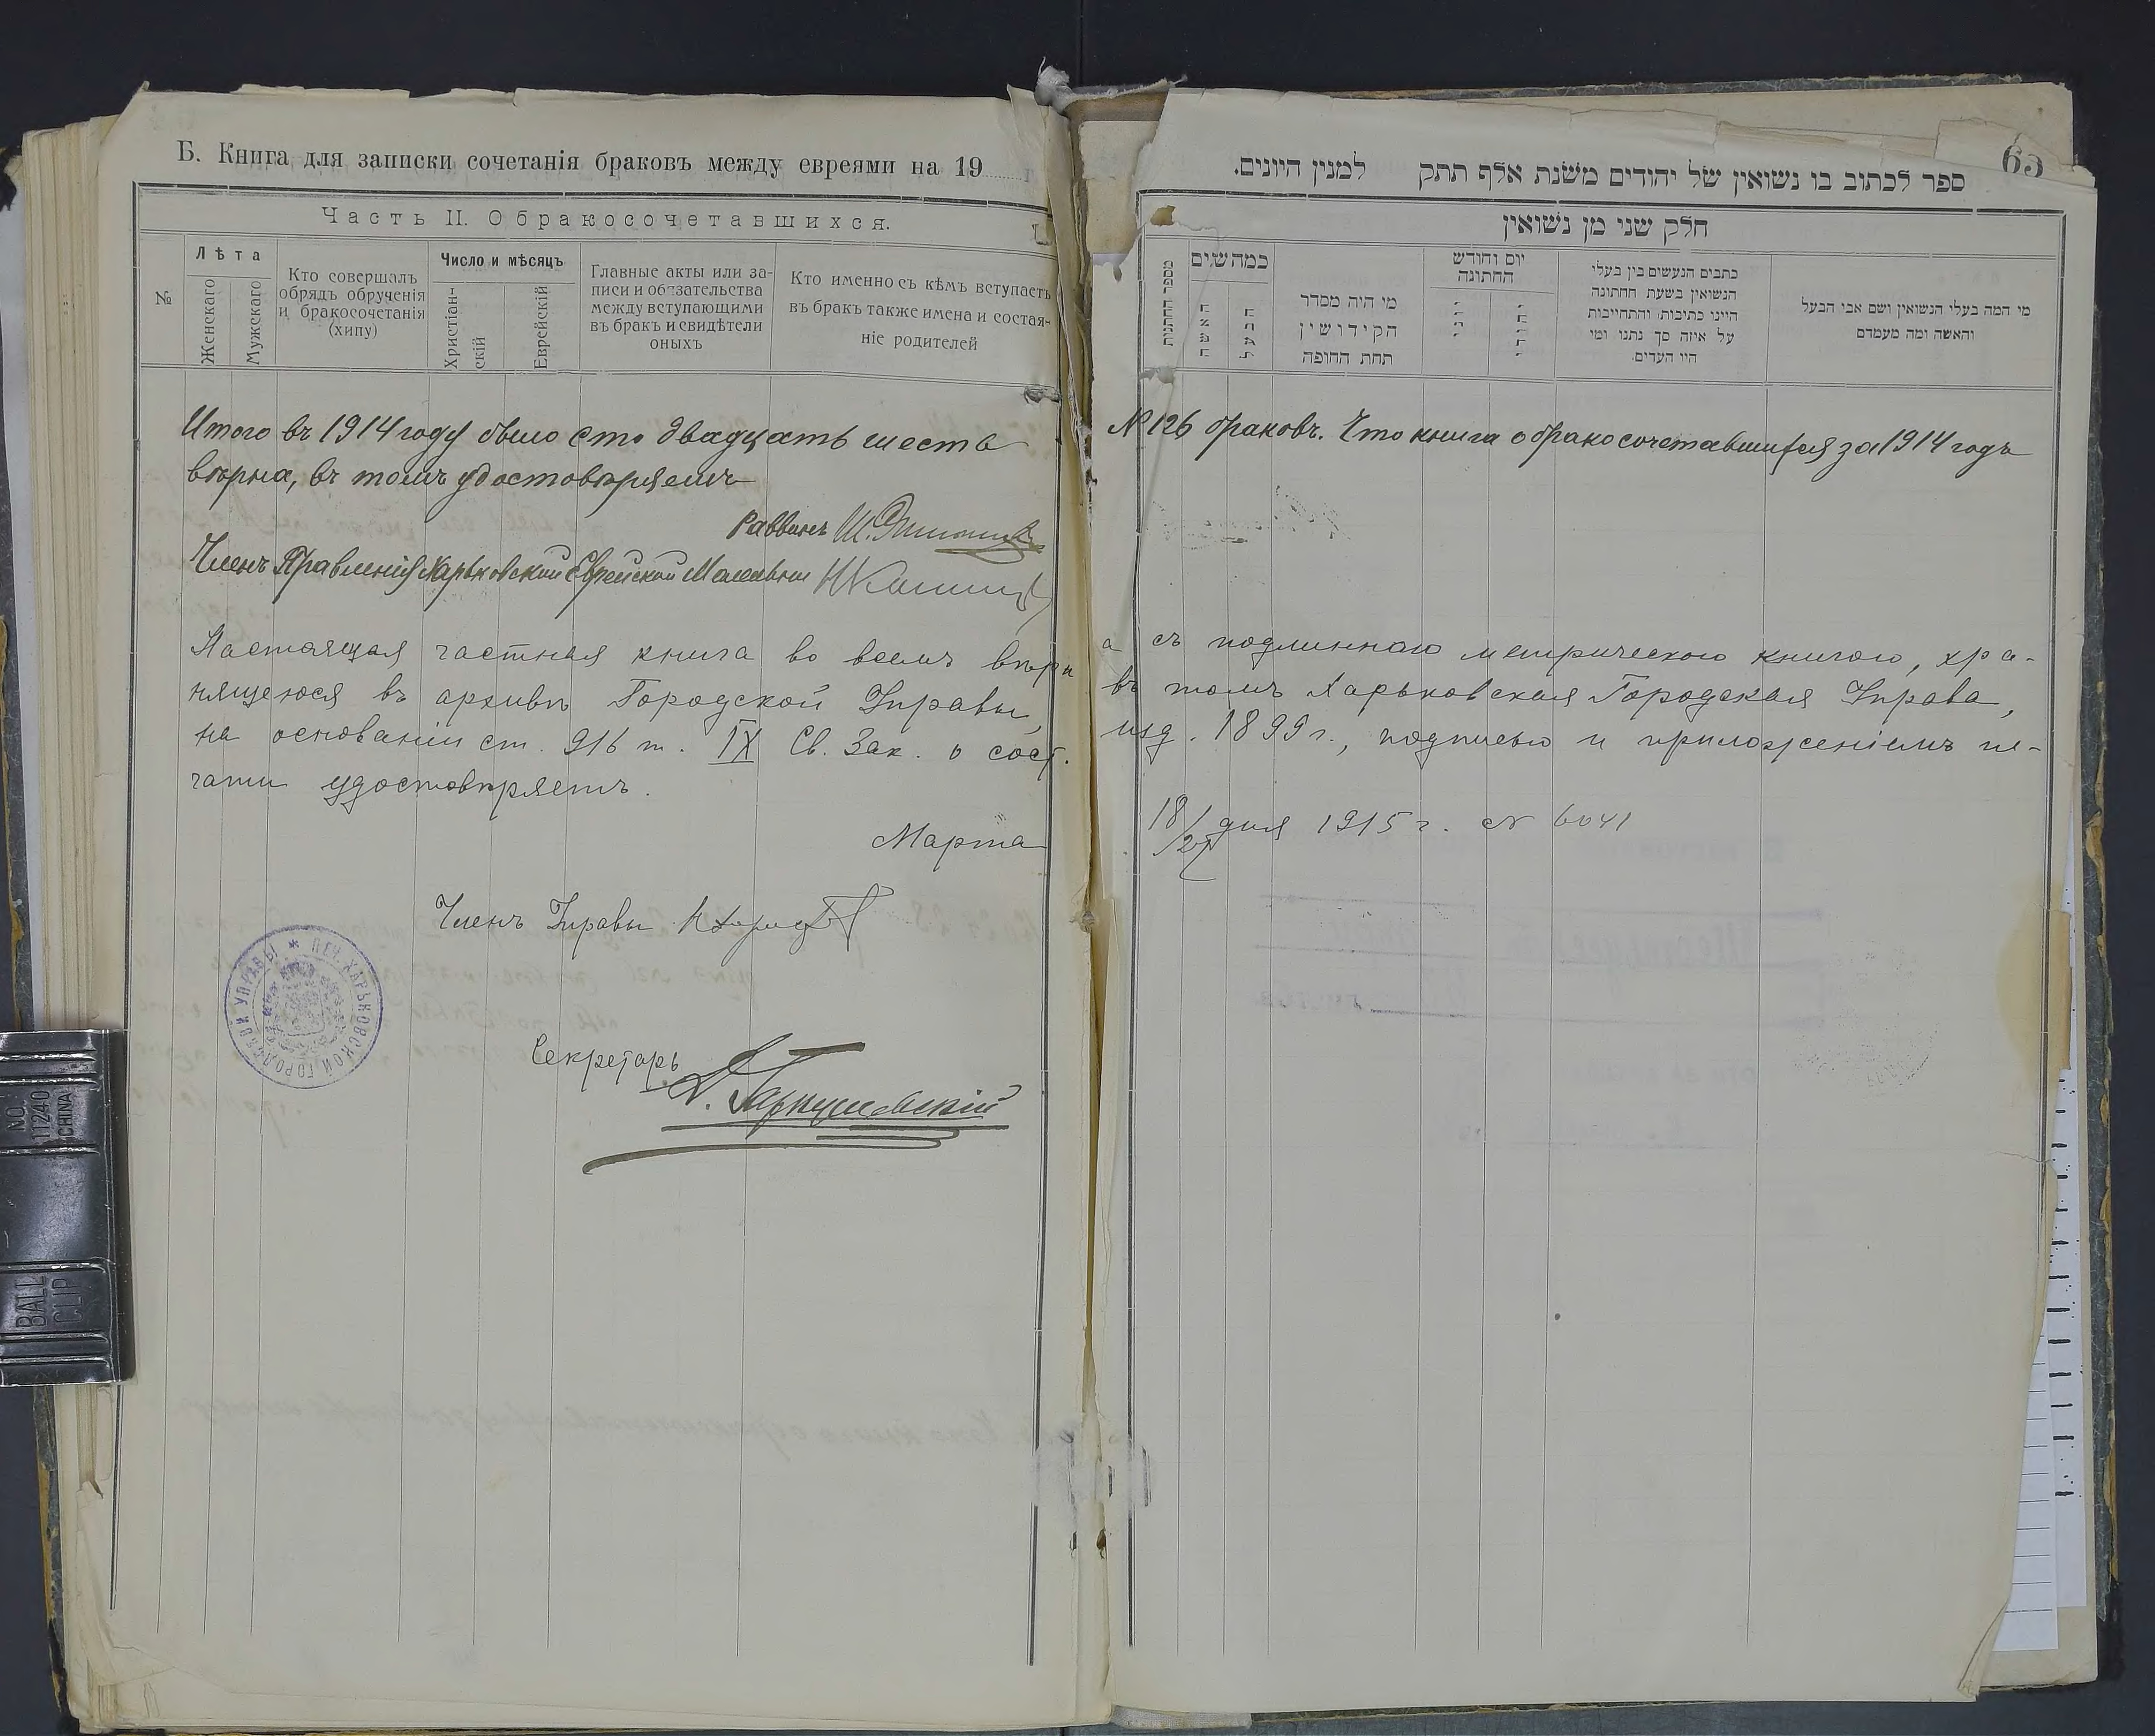 Б. Книга для записки сочетанія браковъ между евреями на 19 г
Часть II. О бракосочетавшихся.
№
Лѣта
Женскаго
Мужскаго
Кто совершалъ
обрядъ обрученія
и бракосочетанія
(хипу)
Число и мѣсяцъ
Христіан-
скій
Еврейскій
Главные акты или за-
писи и обязательства
между вступающими
въ бракъ и свидѣтели
оныхъ
Кто именно съ кѣмъ вступаетъ
въ бракъ также имена и состая-
ніе родителей
65
ספר לכתוב בו נשואין של יהודים משנת אלף תתק למנין היונים.
חלק שני מן נשואין
כמה שנים
האשה
הבעל
מי היה מסדר
הקידושין
תחת החופה
יום וחודש
החתונה
יוני
יהודי
כתבים הנעשים בין בעלי
הנשואין בשעת חחתונה
היינו כתיבות והתחייבות
על איזה סך נתנו ומי
היו העדים.
מי המה בעלי הנשואין ושם אבי הבעל
והאשה ומה מעמדם
Итого въ 1914 году было сто двадцать шесть № 126 браковъ. Что книга о бракосочетавшихся за 1914 годъ
вѣрна, въ томъ удостовѣряемъ
Раввинъ Ш.
Членъ Правленія Харьковской Еврейской Молельни
Настоящая частная книга во всемъ вѣрна съ подлинною метрическою книгою, хра-
нящеюся въ архивѣ Городской Управы, въ томъ Харьковская Городская Управа,
на основаніи ст. 916 т. IX Св. Зак. о сост. изд. 1899 г., подписью и приложеніемъ пе-
чати удостовѣряетъ.
Марта 18/27 дня 1915 г. № 6041
Членъ Управы
ПЕЧ. ХАРЬКОВСКОЙ ГОРОДСКОЙ УПРАВЫ
Секретарь
NO.
11240
CHINA
BALL
CLIP